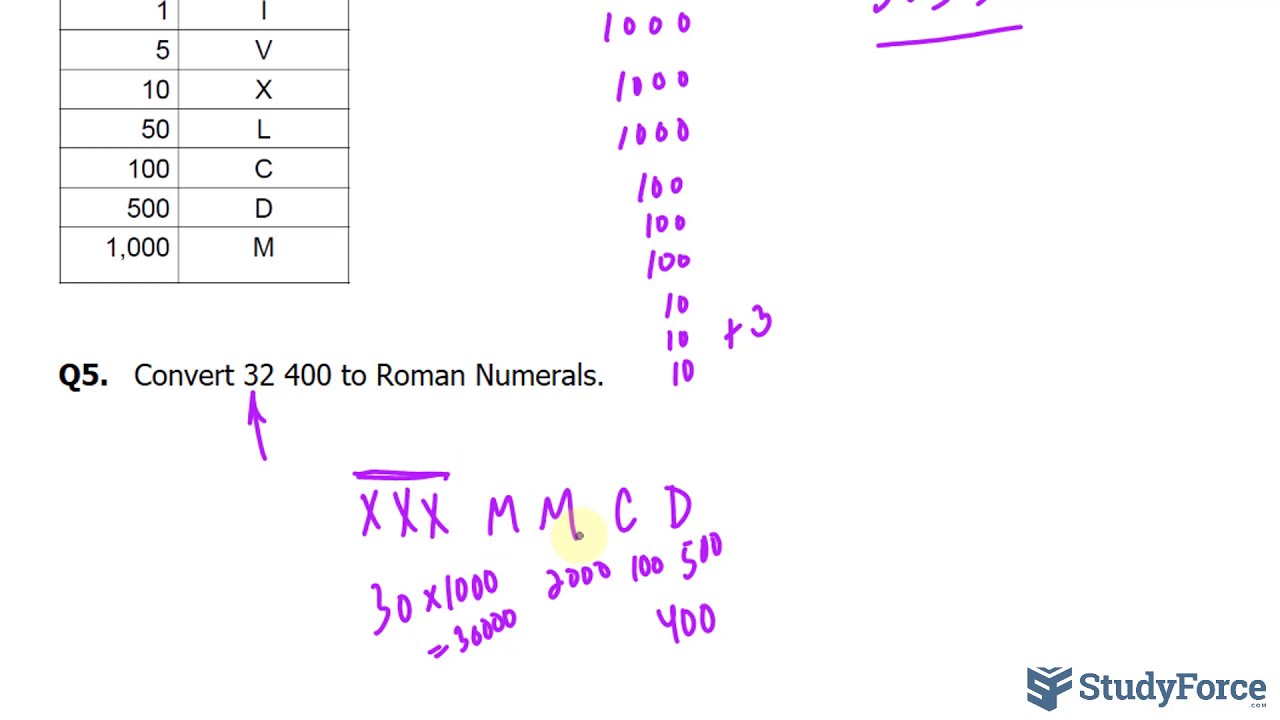 1 I
5 V
10 X
50 L
100 C
500 D
1,000 M
1000
1000
1000
100
100
100
10
10 + 3
10
Q5. Convert 32 400 to Roman Numerals.
XXX M M C D
30 x1000 2000 100 500
= 30000 400
StudyForce
.COM